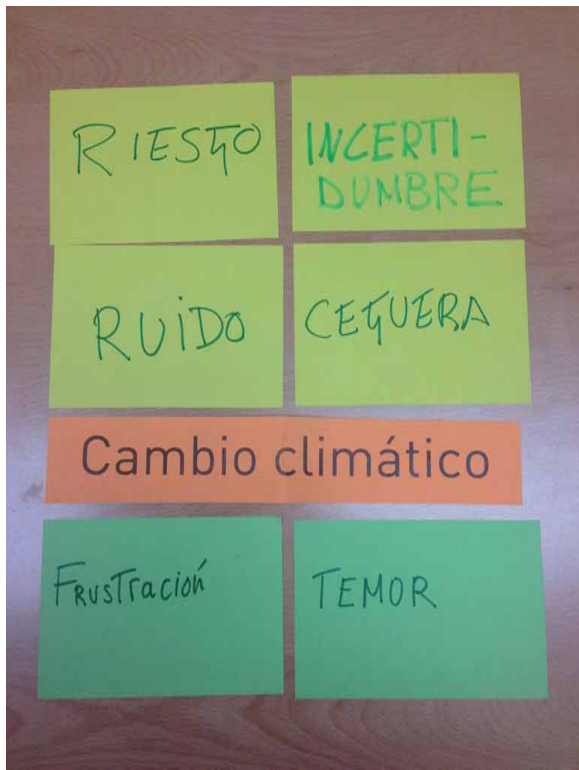 RIESGO
INCERTI-
DUMBRE
RUiDO
CEGUERA
Cambio climático
FRUSTración
TEMOR